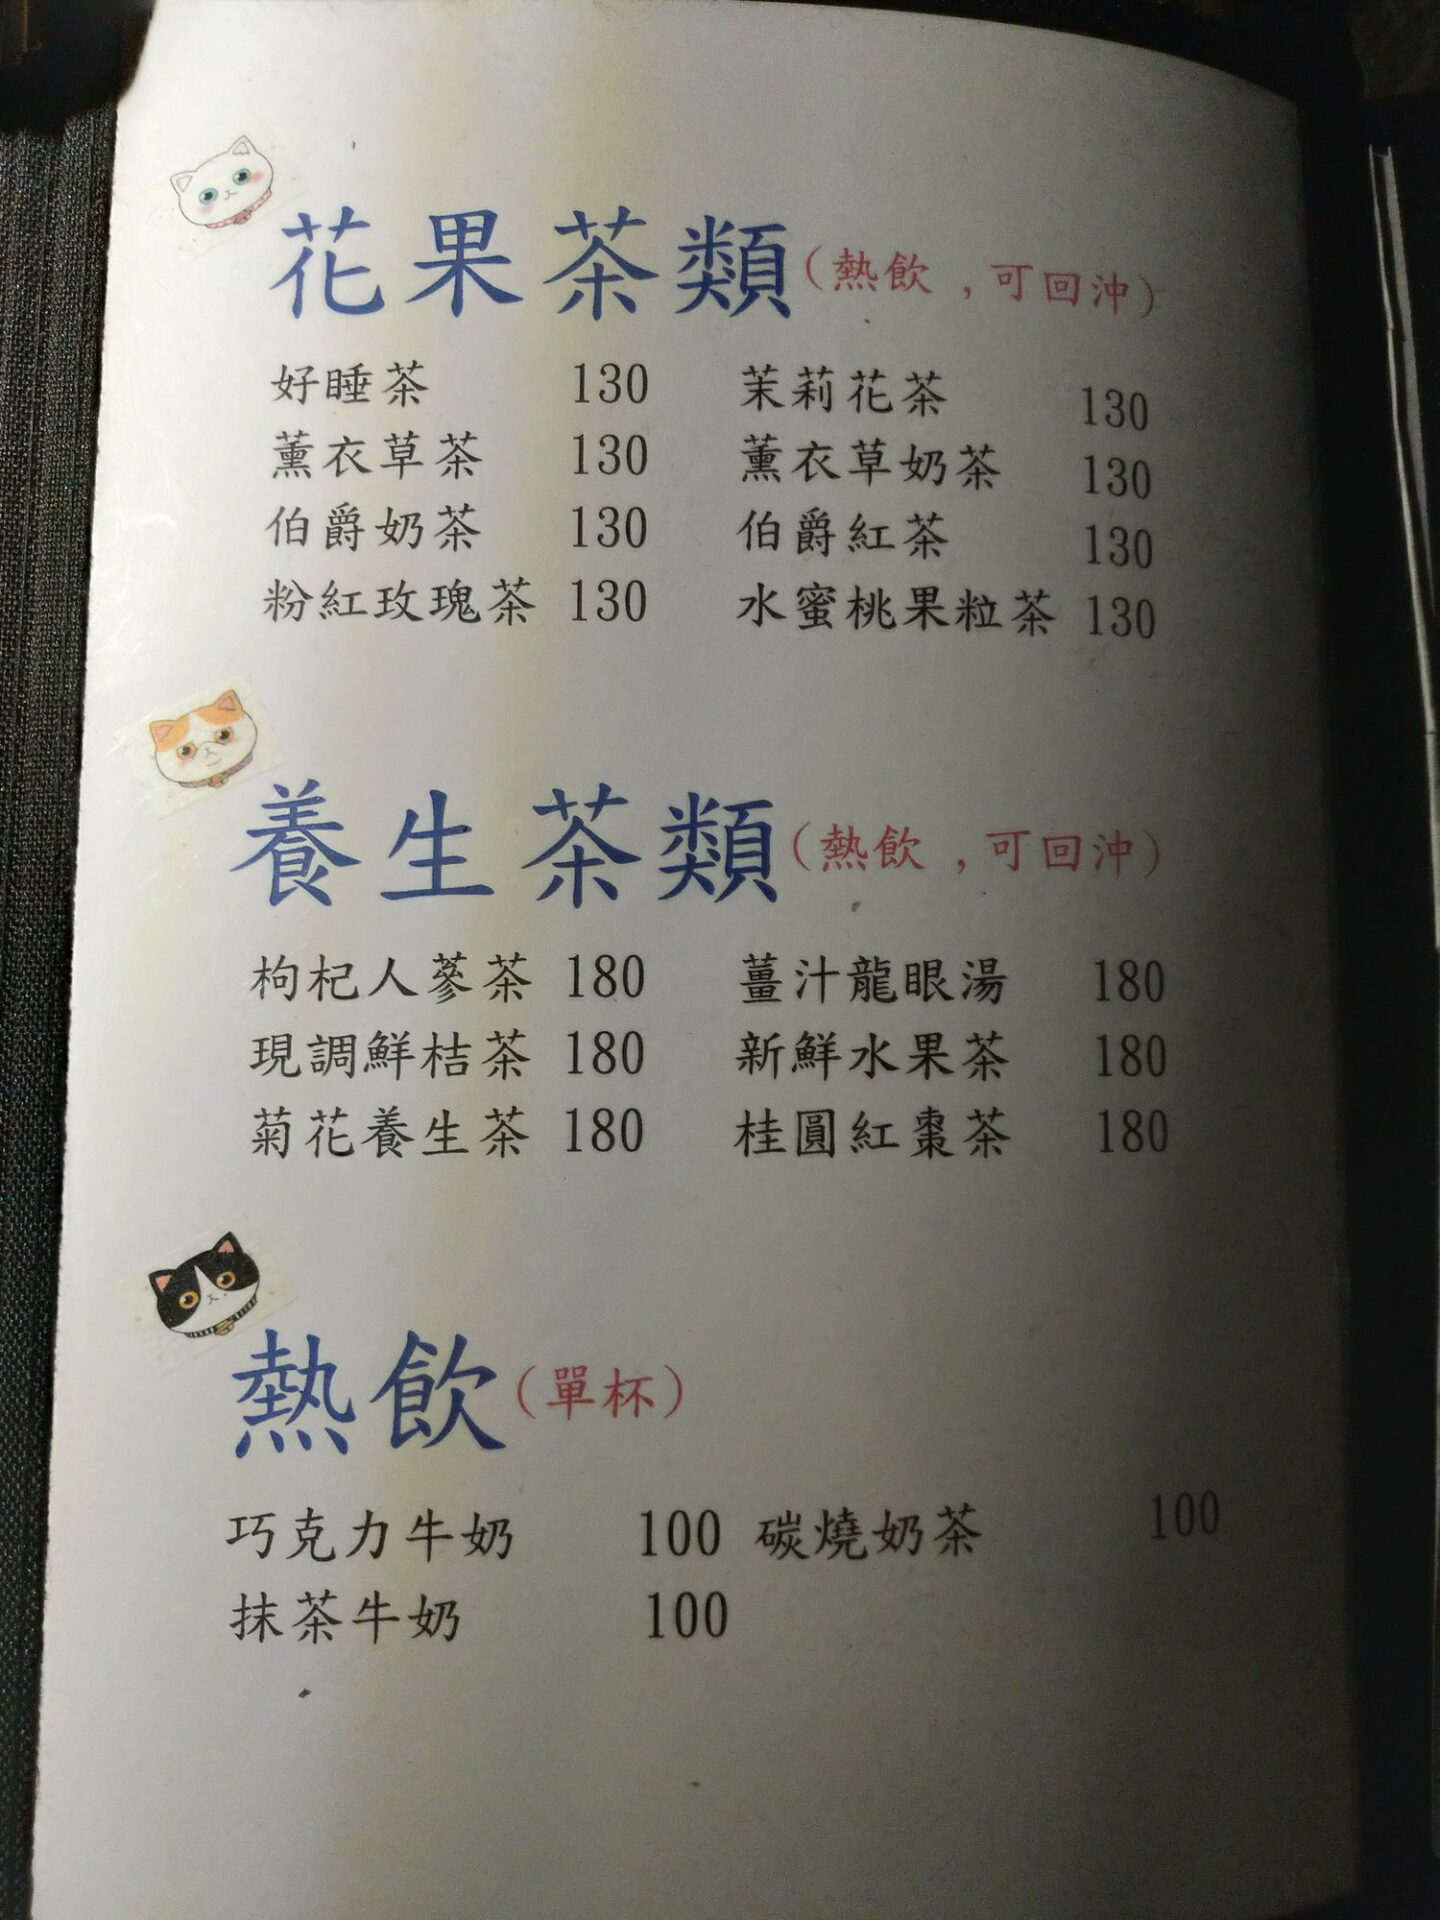 花果茶類(熱飲,可回沖)
好睡茶 130 茉莉花茶 130
薰衣草茶 130 薰衣草奶茶 130
伯爵奶茶 130 伯爵紅茶 130
粉紅玫瑰茶 130 水蜜桃果粒茶 130
養生茶類(熱飲,可回沖)
枸杞人蔘茶 180 薑汁龍眼湯 180
現調鮮桔茶 180 新鮮水果茶 180
菊花養生茶 180 桂圓紅棗茶 180
熱飲(單杯)
巧克力牛奶 100 碳燒奶茶 100
抹茶牛奶 100